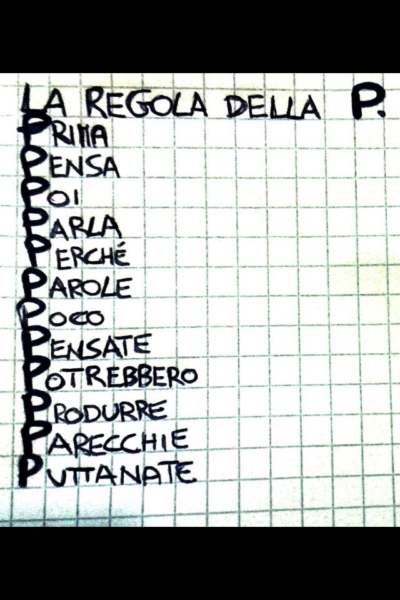 LA REGOLA DELLA P.
PRIMA
PENSA
POI
PARLA
PERCHÉ
PAROLE
POCO
PENSATE
POTREBBERO
PRODURRE
PARECCHIE
PUTTANATE